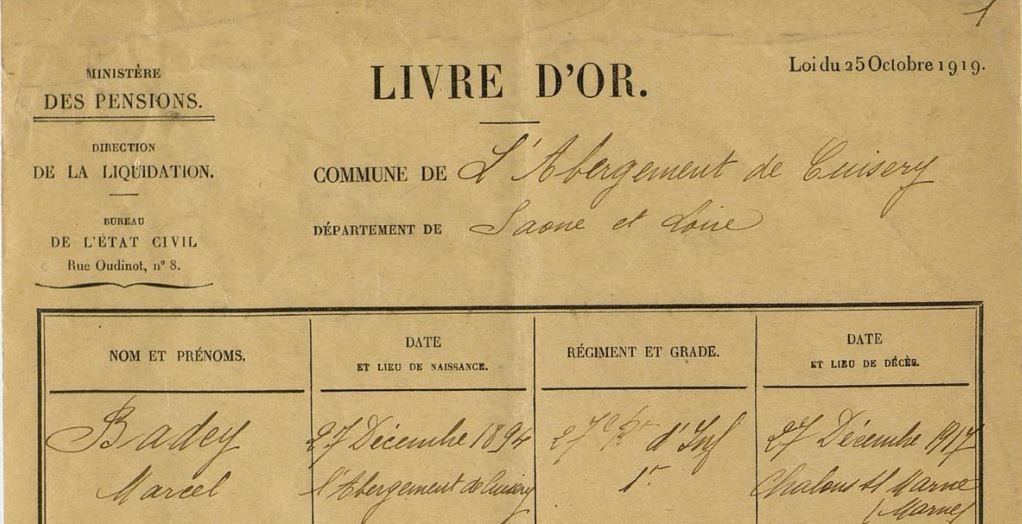 1
MINISTÈRE
DES PENSIONS.
DIRECTION
DE LA LIQUIDATION.
BUREAU
DE L'ÉTAT CIVIL
Rue Oudinot, n° 8.
LIVRE D'OR.
Loi du 25 Octobre 1919.
COMMUNE DE L'Abergement de Cuisery
DÉPARTEMENT DE Saone et Loire
NOM ET PRÉNOMS.
DATE
ET LIEU DE NAISSANCE.
RÉGIMENT ET GRADE.
DATE
ET LIEU DE DÉCÈS.
Badey
Marcel
27 Décembre 1894
l'Abergement de Cuisery
27e Rt d'Inf
27 Décembre 1917
Chalons s/ Marne
(Marne)